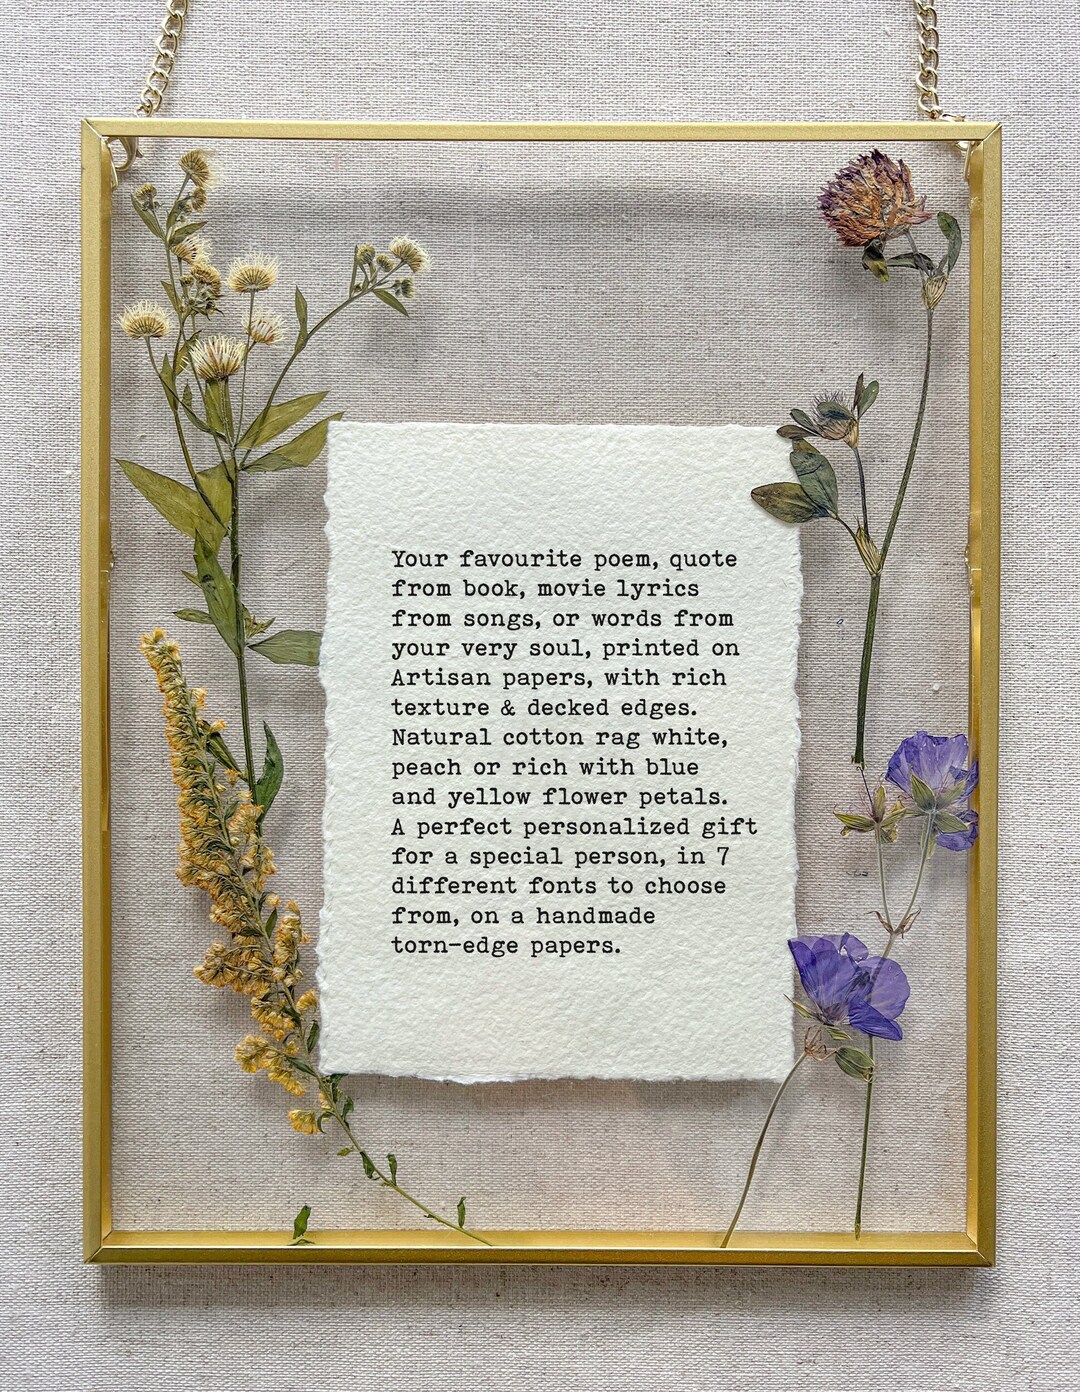 Your favourite poem, quote
from book, movie lyrics
from songs, or words from
your very soul, printed on
Artisan papers, with rich
texture & decked edges.
Natural cotton rag white,
peach or rich with blue
and yellow flower petals.
A perfect personalized gift
for a special person, in 7
different fonts to choose
from, on a handmade
torn-edge papers.